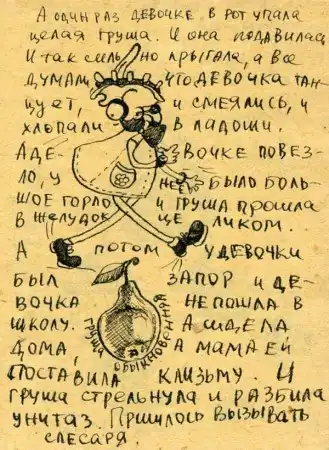 А один раз девочке в рот упала
целая груша. И она подавилась
И так сильно прыгала, а все
думали что девочка тан-
цует, и смеялись, и
хлопали в ладоши.
А де- вочке повез-
ло, у неё было боль-
шое горло и груша прошла
в желудок целиком.
А потом у девочки
был запор и де-
вочка не пошла в
школу. А сидела
дома, а мама ей
поставила клизму. И
груша стрельнула и разбила
унитаз. Пришлось вызывать
слесаря.
груша обыкновенная